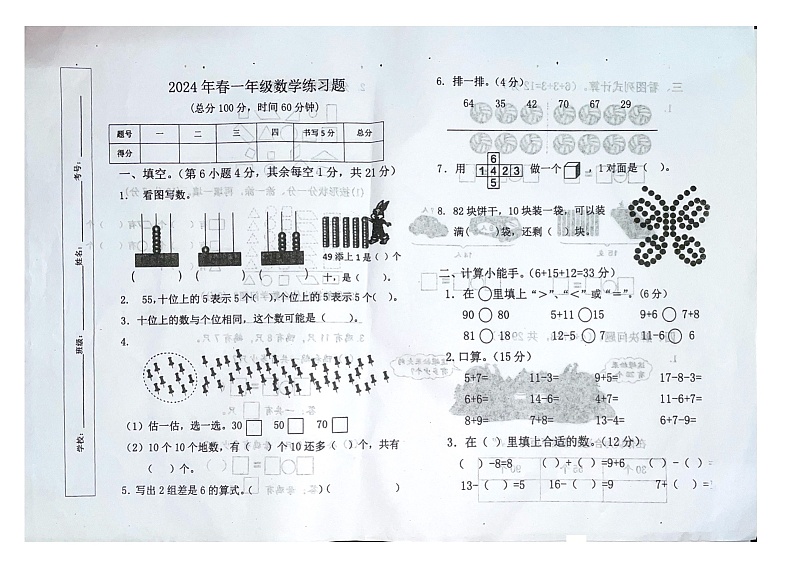 学校：
班级：
姓名：
考号：
2024年春一年级数学练习题
(总分100分，时间60分钟)
题号 一 二 三 四 书写5分 总分
得分
一、填空。（第6小题4分，其余每空1分，共21分）
1. 看图写数。
49添上1是( )个
( ) ( ) ( ) 十，是( )。
2. 55,十位上的5表示5个( ),个位上的5表示5个( )。
3. 十位上的数与个位相同，这个数可能是( )。
4.
(1) 估一估，选一选。30 □ 50 □ 70 □
(2) 10个10个地数，有( )个10还多( )个，共有
( )个。
5. 写出2组差是6的算式。( )( )
6. 排一排。(4分)
64 35 42 70 67 29
7. 用
6
1 4 2 3
5
做一个 ，1对面是( )。
8. 82块饼干，10块装一袋，可以装
满( )袋，还剩( )块。
二、计算小能手。（6+15+12=33分）
1. 在○里填上“>”、“<”或“=”。(6分)
90○80 5+11○15 9+6○7+8
81○18 12-5○7 11-6○6
2. 口算。(15分)
5+7= 11-3= 9+5= 17-8-3=
6+6= 14-6= 4+7= 11-6+7=
8+9= 7+8= 13-4= 6+7-9=
3. 在( )里填上合适的数。(12分)
( )-8=8 ( )+( )=9+6 ( )-( )=
13-( )=5 16-( )=9 7+( )=